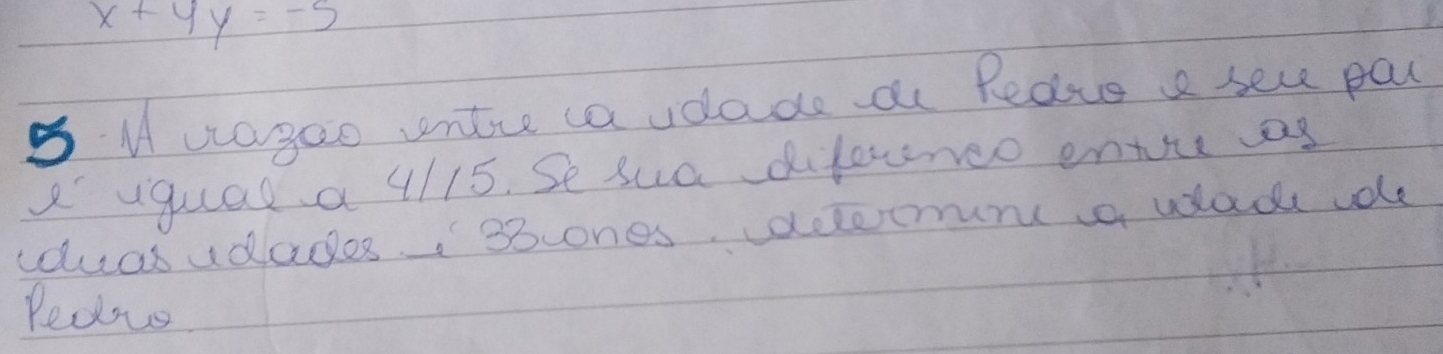 x + 4y = -5
5. A razao entre a idade de Pedro e seu pai
é igual a 4/15. Se sua diferenco entre as
duas idades é 33 anos. determine a idade de
Pedro.